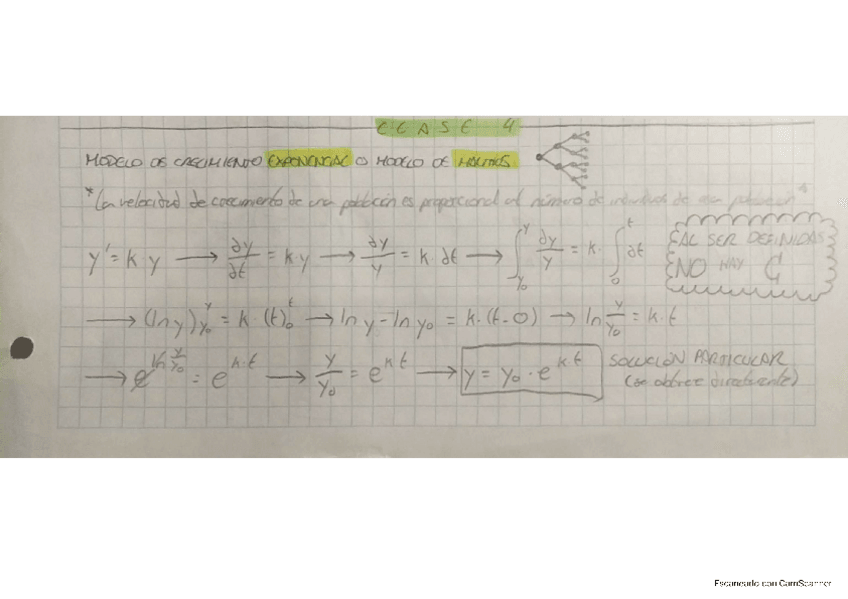 CLASE 4
MODELO DE CRECIMIENTO EXPONENCIAL O MODELO DE MALTHUS
*La velocidad de crecimiento de una población es proporcional al número de individuos de esa población*
y' = k·y → ∂y/∂t = k·y → ∂y/y = k·∂t → ∫_{y₀}^{y} ∂y/y = k·∫_{0}^{t} ∂t
AL SER DEFINIDAS
NO HAY C
→ (ln y)_{y₀}^{y} = k·(t)_{0}^{t} → ln y - ln y₀ = k·(t-0) → ln y/y₀ = k·t
→ e^{ln y/y₀} = e^{k·t} → y/y₀ = e^{kt} → y = y₀·e^{k·t}
SOLUCIÓN PARTICULAR
(se obtiene directamente)
Escaneado con CamScanner